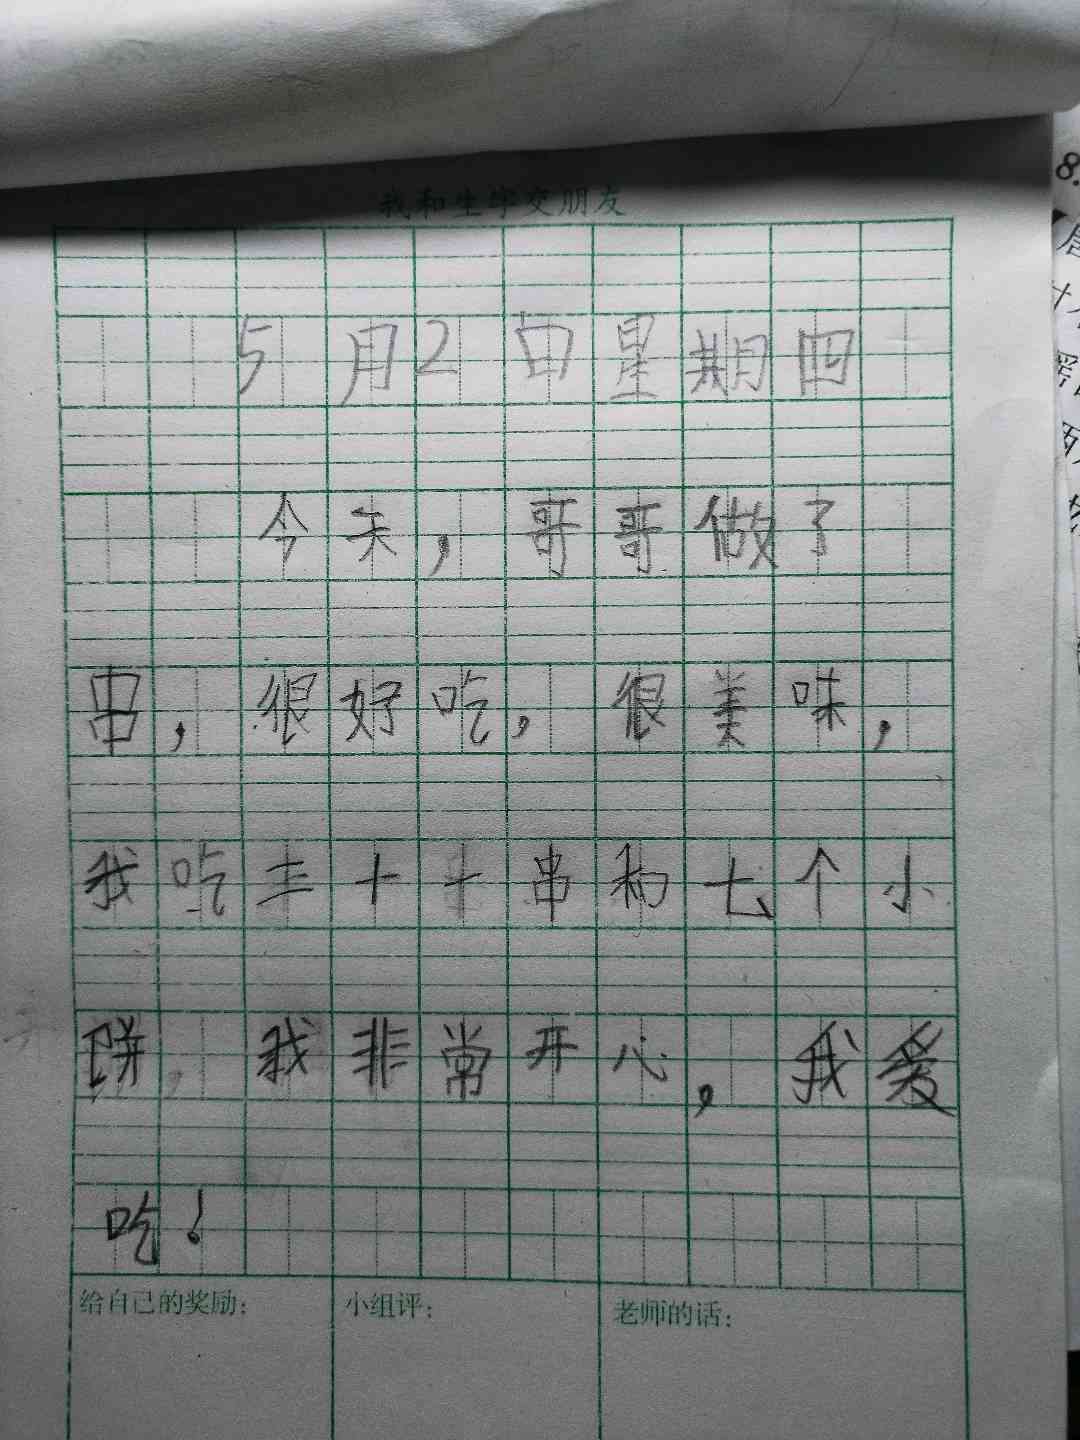 我和生字交朋友
5月2日星期四
今天，哥哥做了
串，很好吃，很美味，
我吃三十十串和七个小
饼，我非常开心，我爱
吃！
给自己的奖励：
小组评：
老师的话：
8.